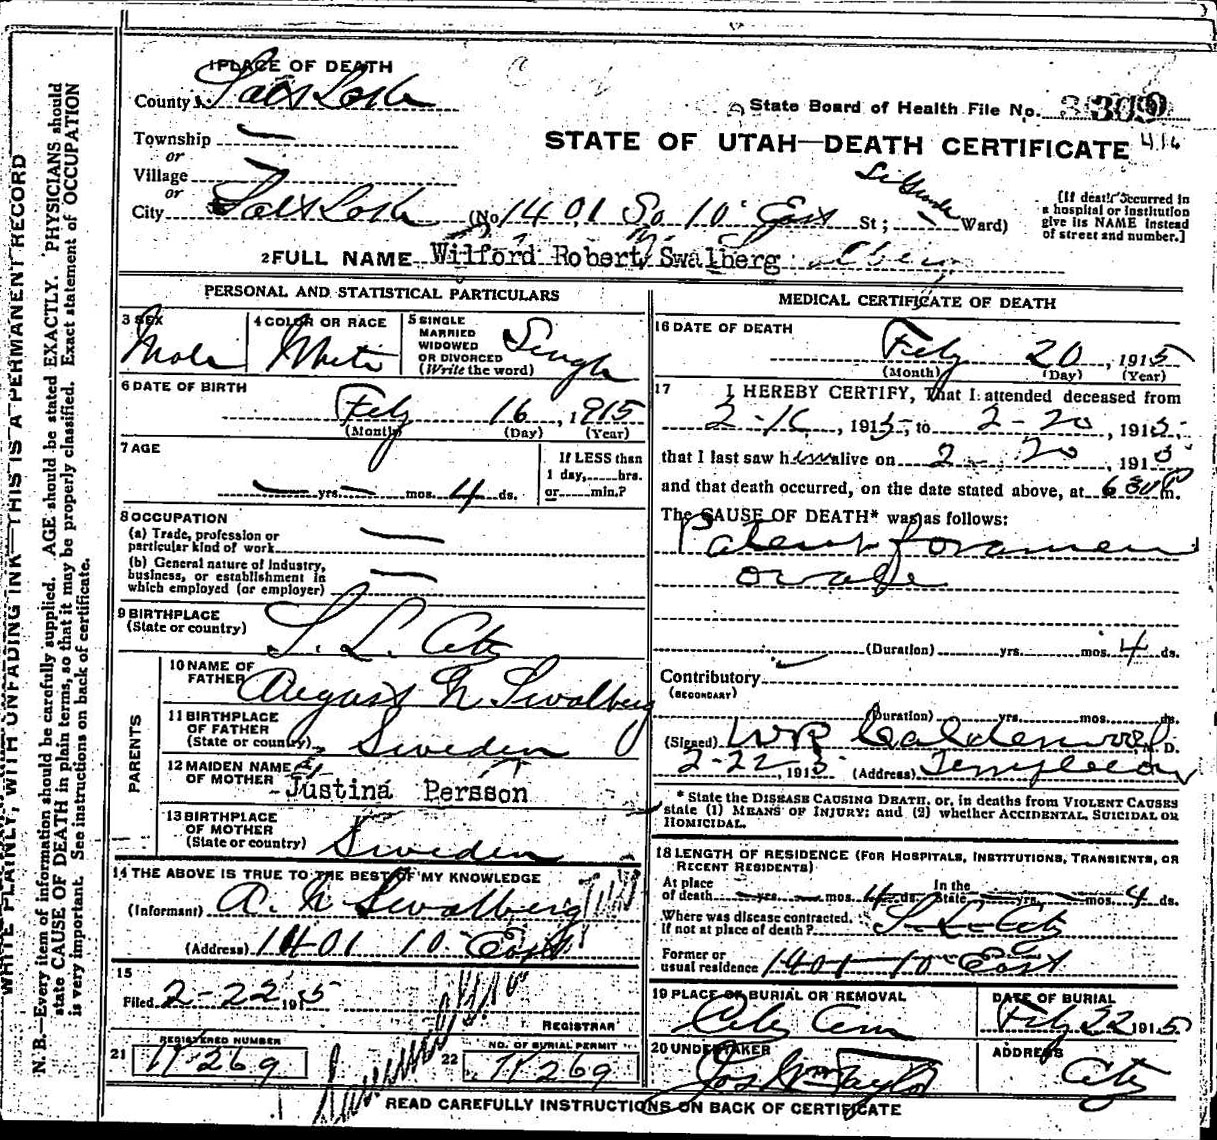 WRITE PLAINLY, WITH UNFADING INK—THIS IS A PERMANENT RECORD
N. B.—Every item of information should be carefully supplied. AGE should be stated EXACTLY. PHYSICIANS should
state CAUSE OF DEATH in plain terms, so that it may be properly classified. Exact statement of OCCUPATION
is very important. See instructions on back of certificate.
1 PLACE OF DEATH
County Salt Lake
State Board of Health File No.
STATE OF UTAH—DEATH CERTIFICATE 416
Township —
or
Village —
or
City Salt Lake (No. 1401 So 10 East St; Ward)
[If death occurred in
a hospital or institution
give its NAME instead
of street and number.]
2 FULL NAME Wilford Robert Swalberg
PERSONAL AND STATISTICAL PARTICULARS
3 SEX
Male
4 COLOR OR RACE
White
5 SINGLE
MARRIED
WIDOWED
OR DIVORCED
(Write the word)
Single
6 DATE OF BIRTH
Feb 16, 1915
(Month) (Day) (Year)
7 AGE
— yrs. — mos. 4 ds.
If LESS than
1 day, hrs.
or min.?
8 OCCUPATION
(a) Trade, profession or
particular kind of work —
(b) General nature of industry,
business, or establishment in
which employed (or employer) —
9 BIRTHPLACE
(State or country)
S. L. City
PARENTS
10 NAME OF
FATHER
August N Swalberg
11 BIRTHPLACE
OF FATHER
(State or country)
Sweden
12 MAIDEN NAME
OF MOTHER
Justina Persson
13 BIRTHPLACE
OF MOTHER
(State or country)
Sweden
14 THE ABOVE IS TRUE TO THE BEST OF MY KNOWLEDGE
(Informant) A. N Swalberg
(Address) 1401 10 East
15
Filed 2-22 1915
REGISTRAR
21 REGISTERED NUMBER
H269
22 NO. OF BURIAL PERMIT
H269
MEDICAL CERTIFICATE OF DEATH
16 DATE OF DEATH
Feb 20, 1915
(Month) (Day) (Year)
17 I HEREBY CERTIFY, That I attended deceased from
2-16, 1915, to 2-20, 1915
that I last saw him alive on 2-20, 1915
and that death occurred, on the date stated above, at 630 P m.
The CAUSE OF DEATH* was as follows:
Patent foramen
ovale
(Duration) yrs. mos. 4 ds.
Contributory
(SECONDARY)
(Duration) yrs. mos. ds.
(Signed) W R Calderwood M. D.
2-22, 1915 (Address) Templeton
* State the DISEASE CAUSING DEATH, or, in deaths from VIOLENT CAUSES
state (1) MEANS OF INJURY; and (2) whether ACCIDENTAL, SUICIDAL OR
HOMICIDAL.
18 LENGTH OF RESIDENCE (FOR HOSPITALS, INSTITUTIONS, TRANSIENTS, OR
RECENT RESIDENTS)
At place
of death — yrs. — mos. 4 ds.
In the
State — yrs. — mos. 4 ds.
Where was disease contracted,
if not at place of death? S. L. City
Former or
usual residence 1401-10 East
19 PLACE OF BURIAL OR REMOVAL
City Cem
DATE OF BURIAL
Feb 22 1915
20 UNDERTAKER
Jos Wm Taylor
ADDRESS
City
READ CAREFULLY INSTRUCTIONS ON BACK OF CERTIFICATE